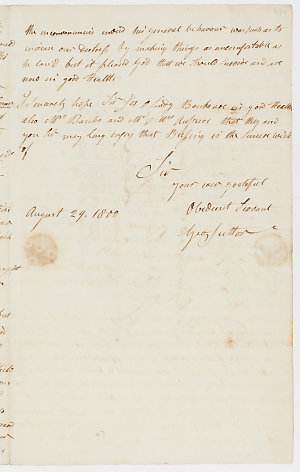 the inconveniences indeed his general behaviour was such as to
increase our distress by making things as uncomfortable as
he could but it pleased God that we should arrive and are
now in good Health
I sincerely hope Sir Jos & Lady Banks are in good Health
also Mrs Banks and Mr & Mrs that they and
you Sir may long enjoy that Blessing is the sincere wish
of
Sir
your ever grateful
Obedient Servant
August 29. 1800
Suttor